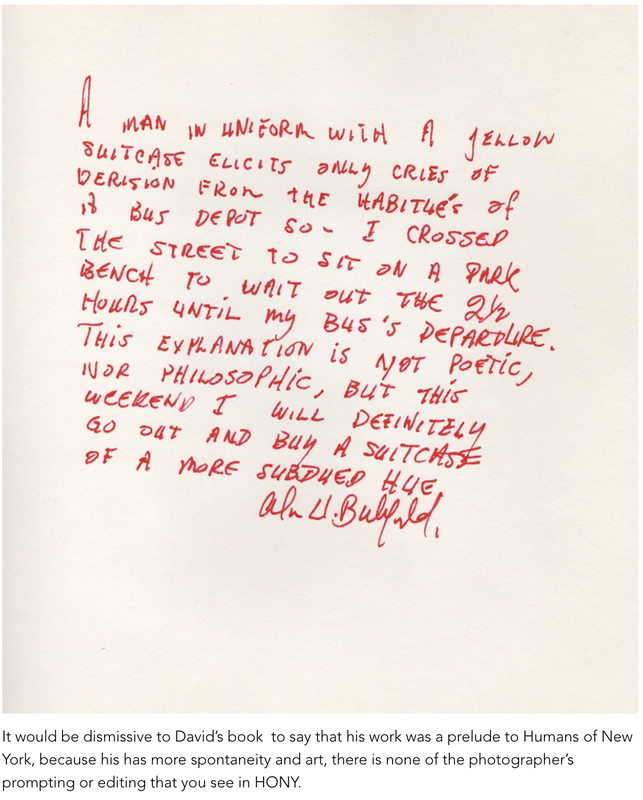 A MAN IN UNIFORM WITH A YELLOW
SUITCASE ELICITS ONLY CRIES OF
DERISION FROM THE HABITUÉS OF
BUS DEPOT SO - I CROSSED
THE STREET TO SIT ON A PARK
BENCH TO WAIT OUT THE 2½
HOURS UNTIL MY BUS'S DEPARTURE.
THIS EXPLANATION IS NOT POETIC,
NOR PHILOSOPHIC, BUT THIS
WEEKEND I WILL DEFINITELY
GO OUT AND BUY A SUITCASE
OF A MORE SUBDUED HUE.
It would be dismissive to David's book to say that his work was a prelude to Humans of New
York, because his has more spontaneity and art, there is none of the photographer's
prompting or editing that you see in HONY.